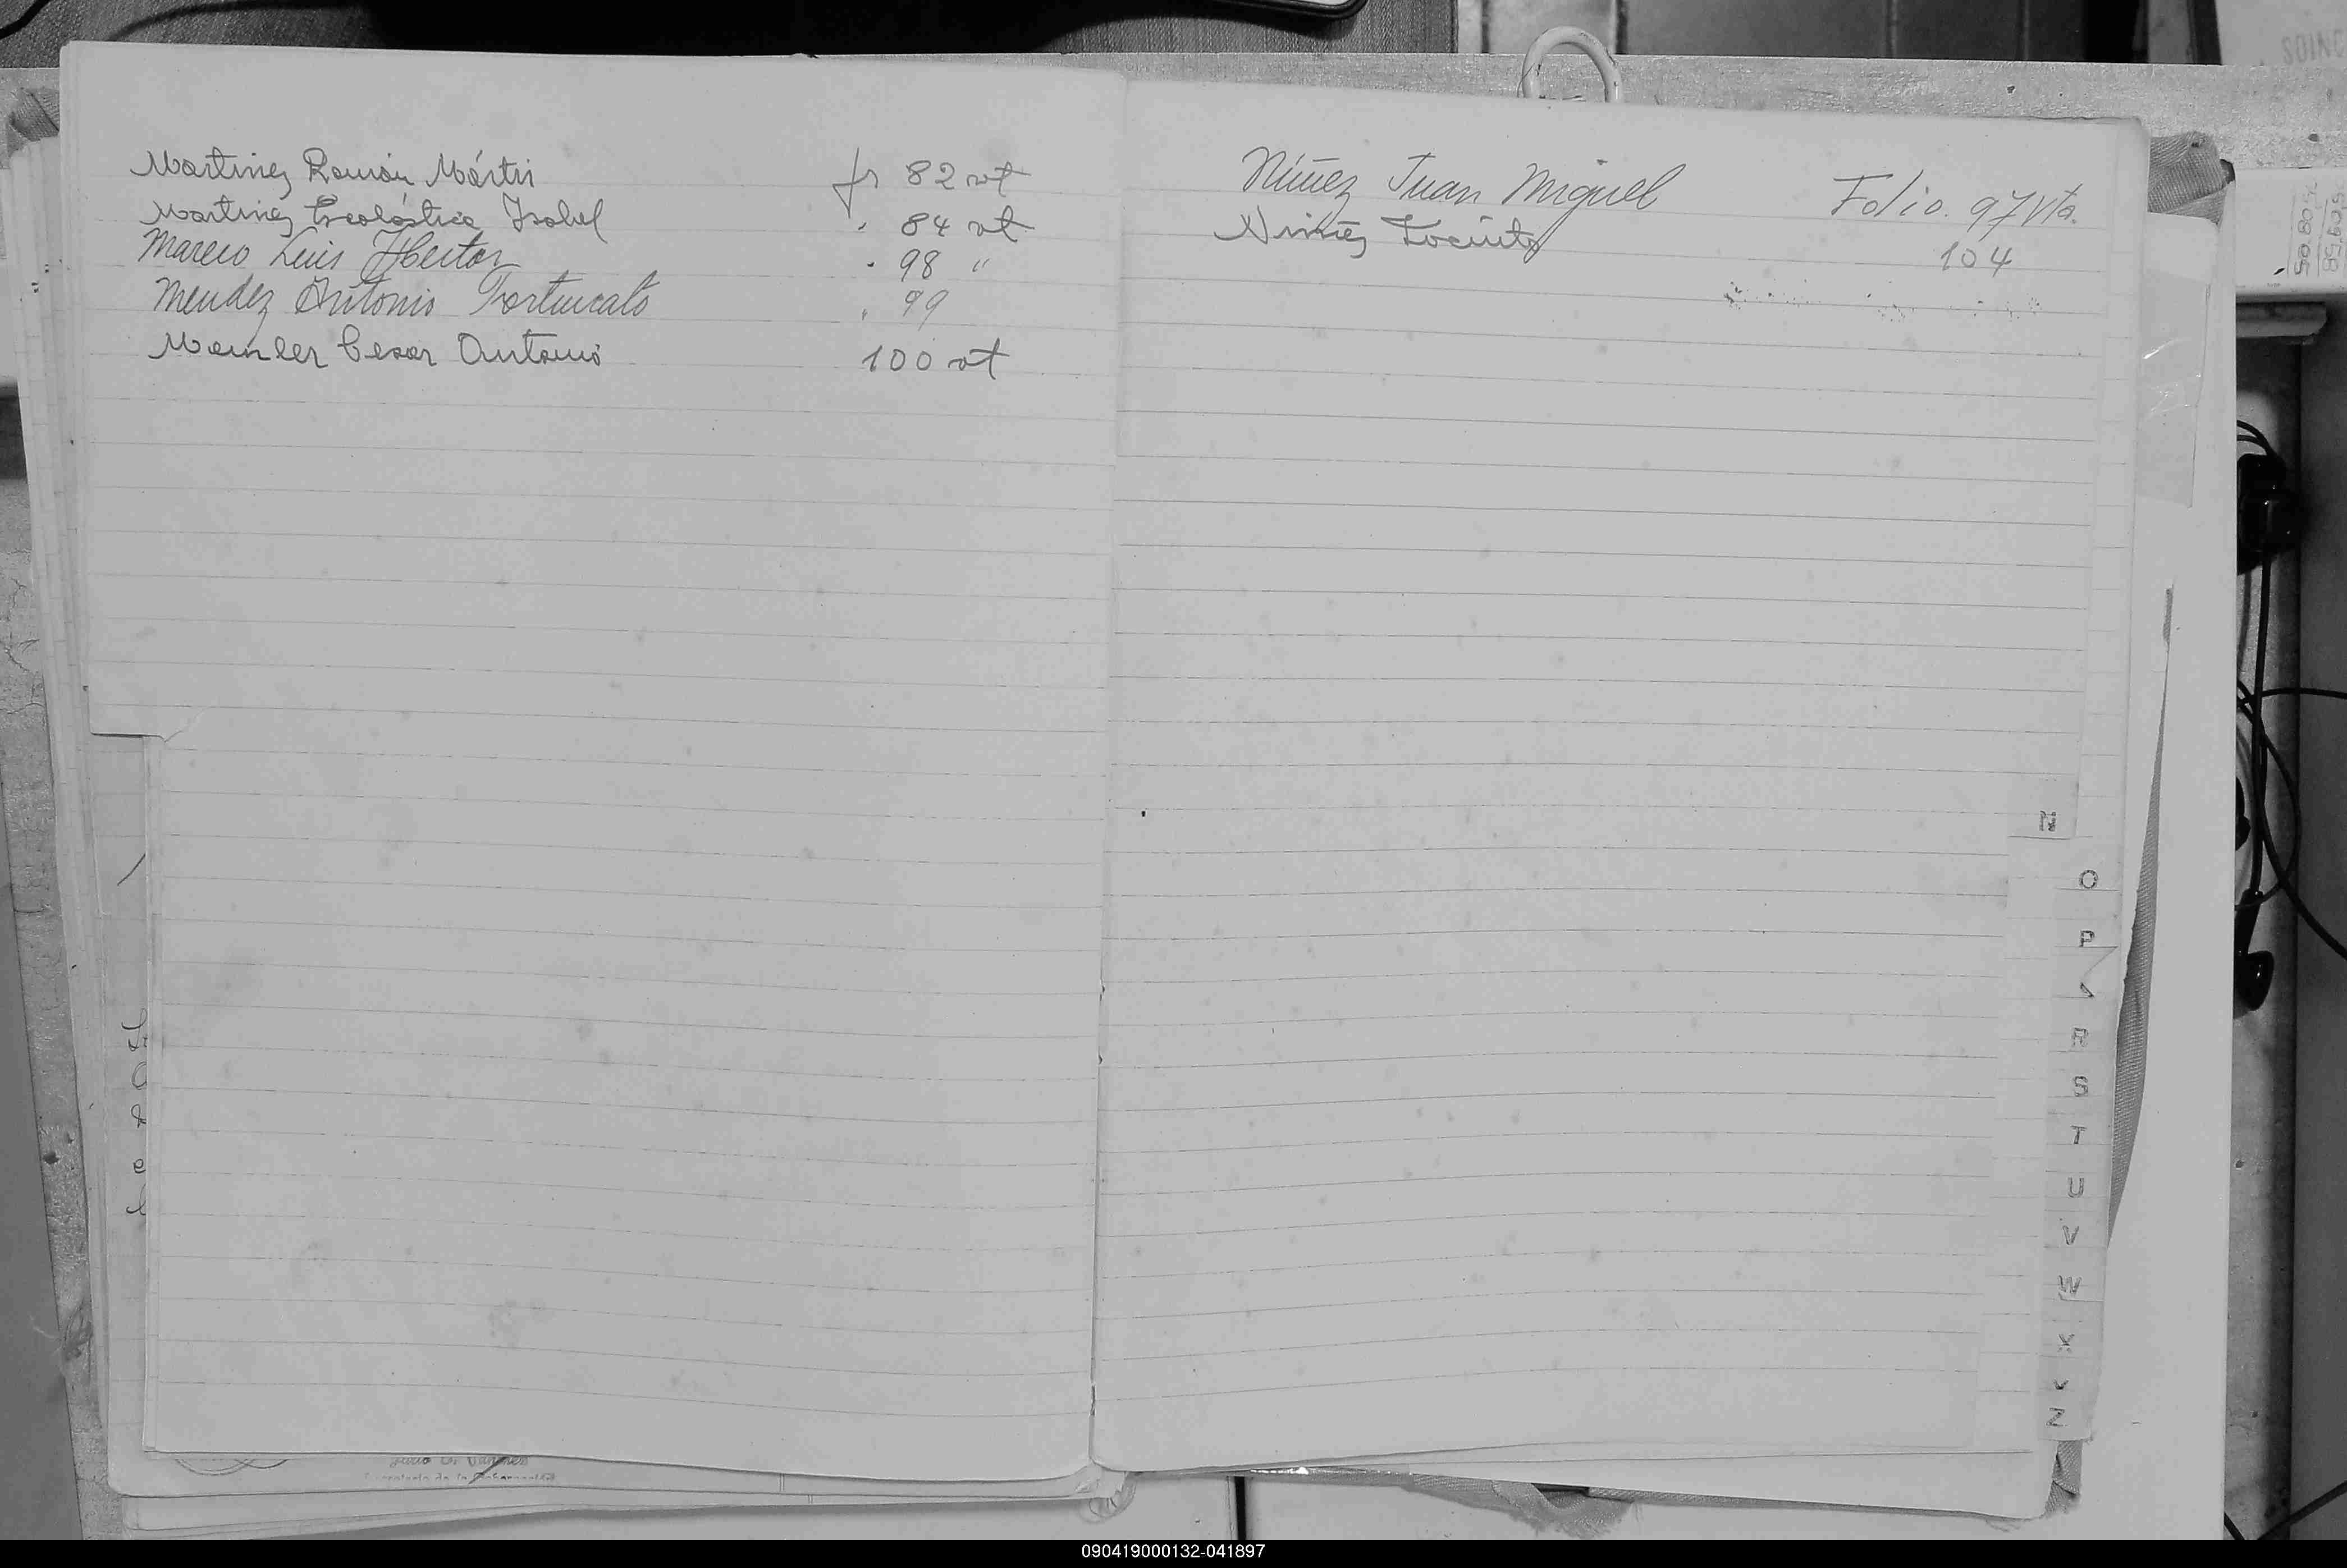 Martinez Ramón Mártir fs 82 vt
Martinez Escolástica Isabel " 84 vt
Marecо Luis Hector " 98 "
Mendez Antonio Fortunato " 99
Meinler Cesar Antonio 100 vt
Núñez Juan Miguel Folio. 97 vta.
Nuñez Jacinto 104
N
O
P
R
S
T
U
V
W
X
Z
090419000132-041897